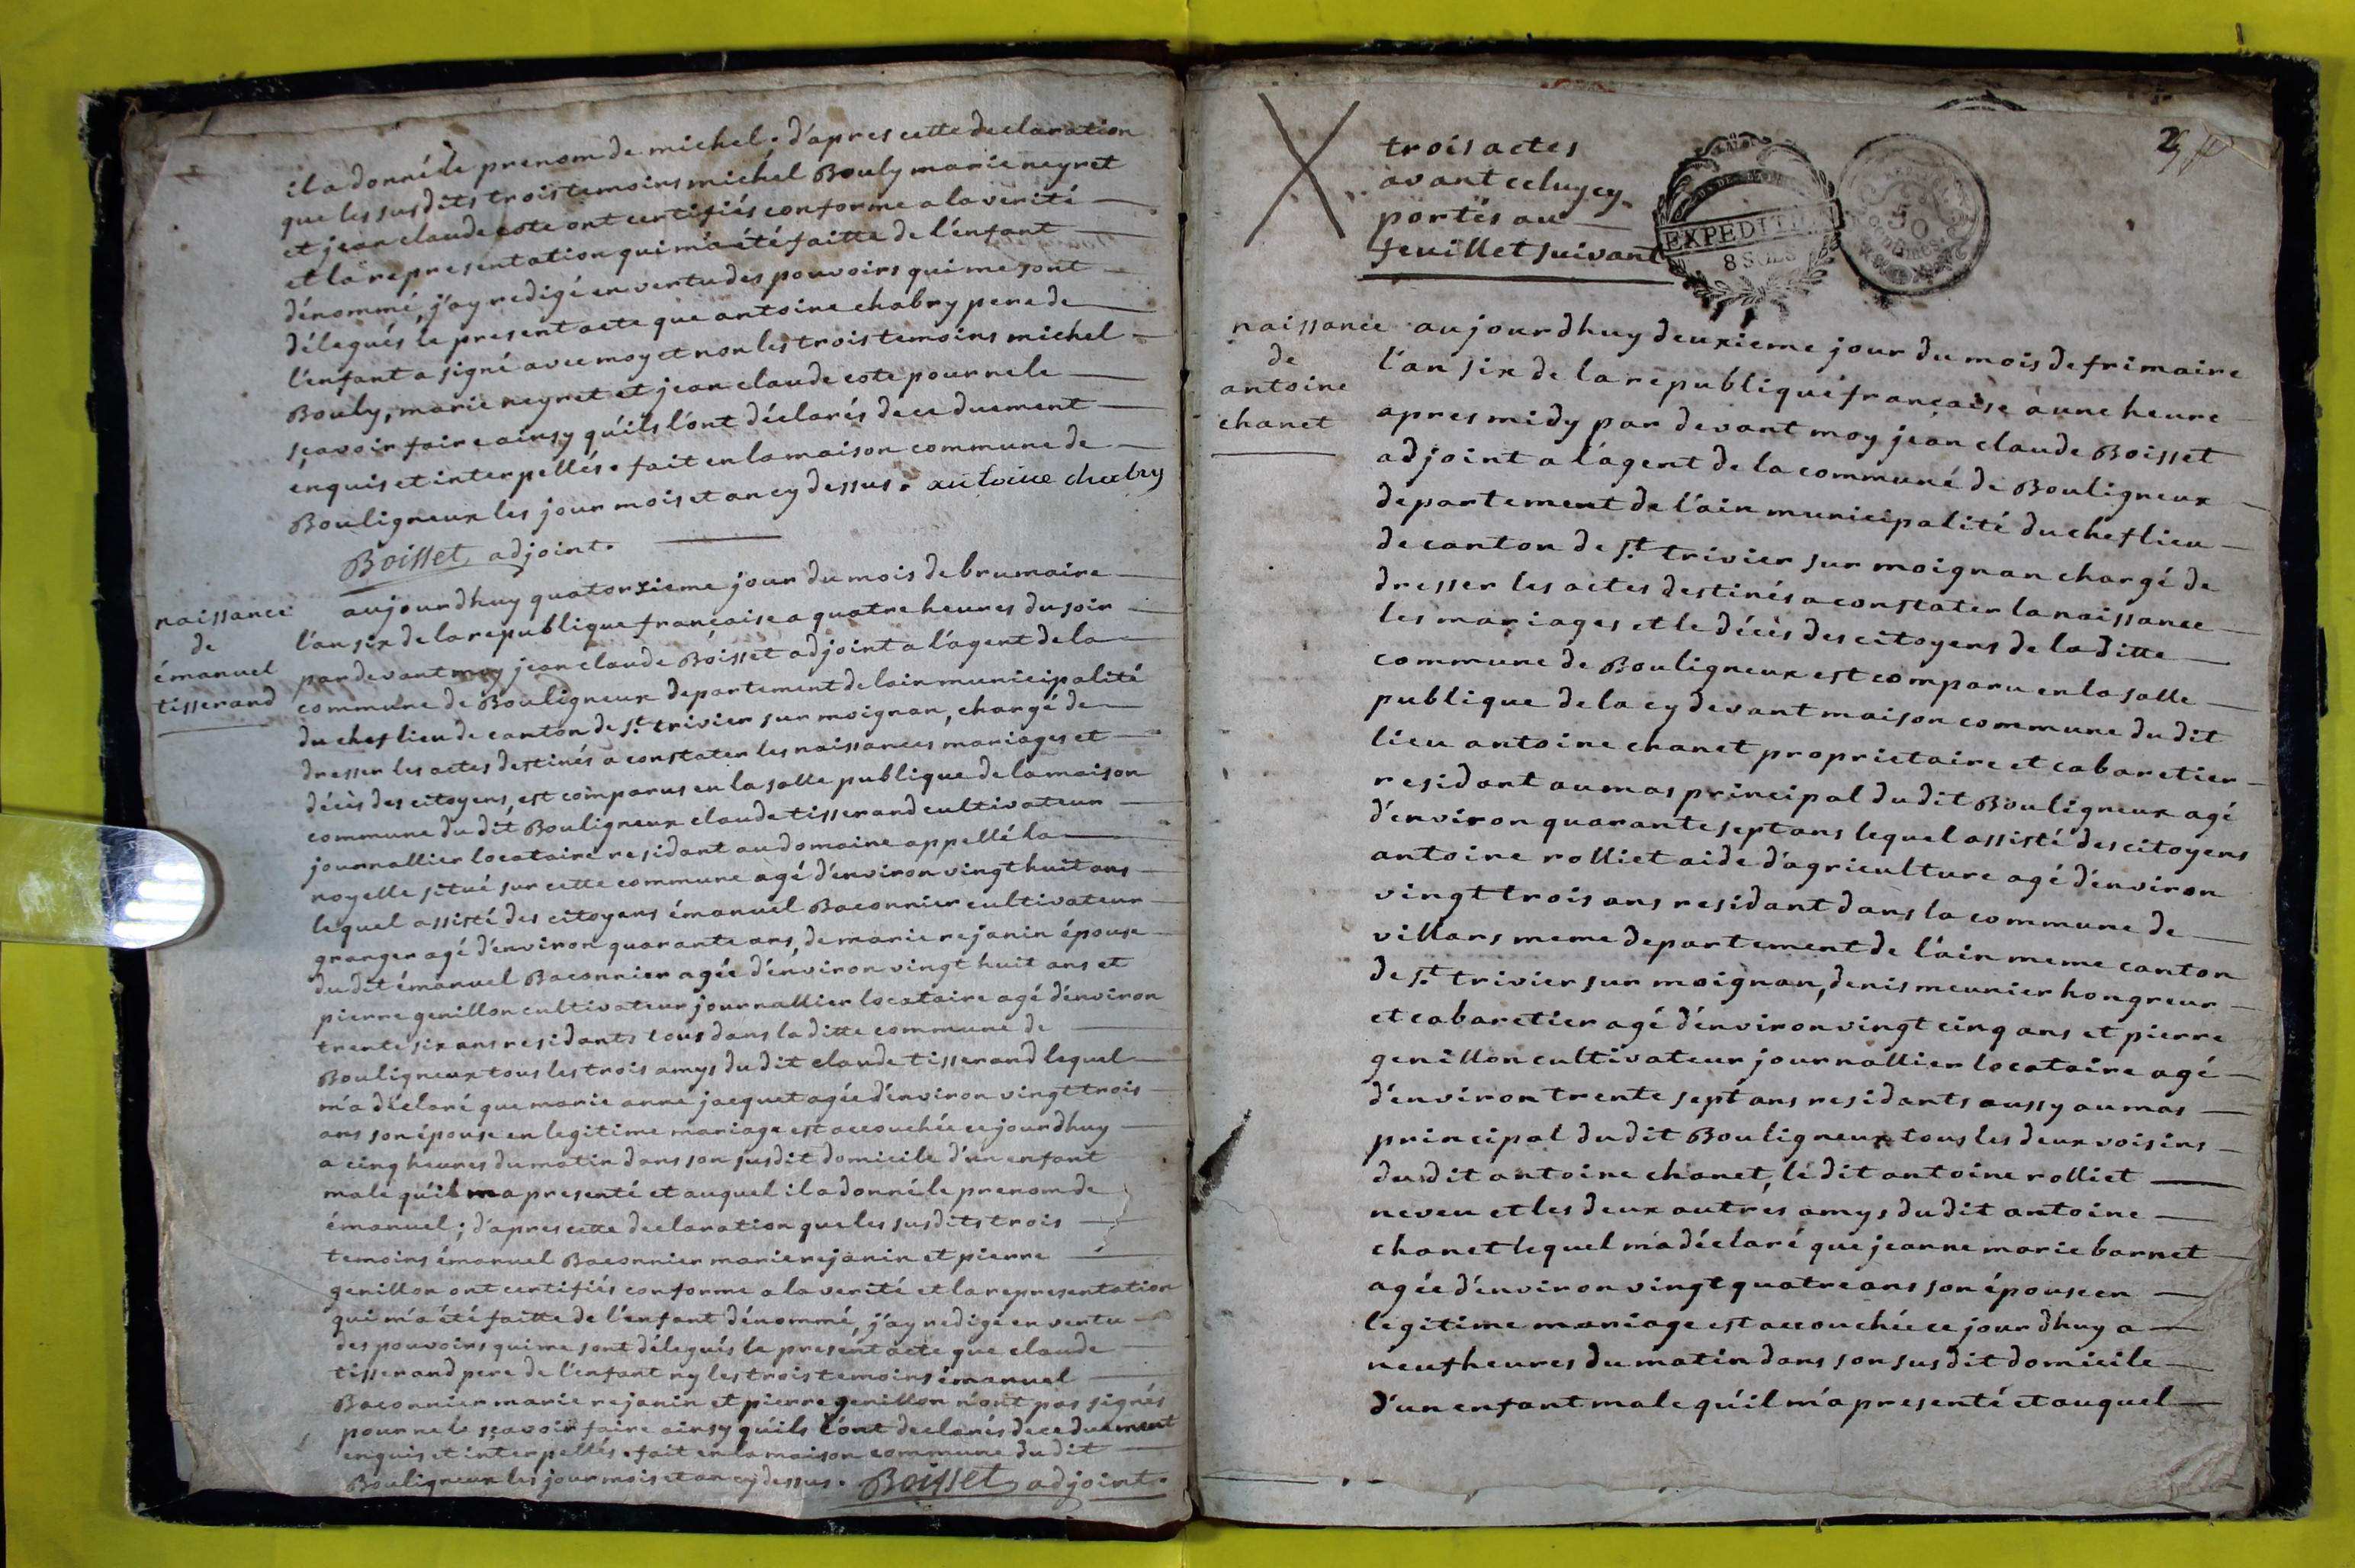 il a donné le prenom de michel. d'apres cette declaration
que les susdits trois temoins michel Bouly marie neyret
et jean claude cote ont certifiés conforme a la verité
et la representation qui m'a été faitte de l'enfant
dénommé, j'ay redigé en vertu des pouvoirs qui me sont
délegués le present acte que antoine chabry pere de
l'enfant a signé avec moy et non les trois temoins michel
Bouly, marie neyret et jean claude cote pour ne le
sçavoir faire ainsy qu'ils l'ont déclarés de ce duement
enquis et interpellés. fait en la maison commune de
Bouligneux les jour mois et an cy dessus. antoine chabry
Boisset adjoint.
naissance
de
émanuel
tisserand
aujourdhuy quatorzieme jour du mois de brumaire
l'an six de la republique française a quatre heures du soir
par devant moy jean claude Boisset adjoint a l'agent de la
commune de Bouligneux departement de lain municipalité
du chef lieu de canton de st. trivier sur moignan, chargé de
dresser les actes destinés a constater les naissances mariages et
décès des citoyens, est comparus en la salle publique de la maison
commune du dit Bouligneux claude tisserand cultivateur
journallier locataire residant au domaine appellé la
noyelle situé sur cette commune agé d'environ vingt huit ans
lequel assisté des citoyens émanuel Baconnier cultivateur
granger agé d'environ quarante ans, de marie rejanin épouse
du dit émanuel Baconnier agée d'environ vingt huit ans et
pierre genillon cultivateur journallier locataire agé d'environ
trente six ans residants tous dans la ditte commune de
Bouligneux tous les trois amys du dit claude tisserand lequel
m'a déclaré que marie anne jacquet agée d'environ vingt trois
ans son épouse en legitime mariage est accouchée ce jourdhuy
a cinq heures du matin dans son susdit domicile d'un enfant
male qu'il m a presenté et auquel il a donné le prenom de
émanuel; d'apres cette declaration que les susdits trois
temoins émanuel Baconnier marie rejanin et pierre
genillon ont certifiés conforme a la verité et la representation
qui m'a été faitte de l'enfant dénommé, j'ay redigé en vertu
des pouvoirs qui me sont délegués le present acte que claude
tisserand pere de l'enfant ny les trois temoins émanuel
Baconnier marie rejanin et pierre genillon n'ont pas signés
pour ne le sçavoir faire ainsy qu'ils l'ont declarés de ce duement
enquis et interpellés. fait en la maison commune du dit
Bouligneux les jour mois et an cy dessus. Boisset adjoint.
2
trois actes
avant celuy cy
portés au
feuillet suivant
EXPEDITION
8 SOLS
50
centimes
naissance
de
antoine
chanet
aujourdhuy deuxieme jour du mois de frimaire
l'an six de la republique française a une heure
apres midy par devant moy jean claude Boisset
adjoint a l'agent de la commune de Bouligneux
departement de l'ain municipalité du chef lieu
de canton de st. trivier sur moignan chargé de
dresser les actes destinés a constater la naissance
les mariages et le décès des citoyens de la ditte
commune de Bouligneux est comparu en la salle
publique de la cy devant maison commune du dit
lieu antoine chanet proprietaire et cabaretier
residant au mas principal du dit Bouligneux agé
d'environ quarante sept ans lequel assisté des citoyens
antoine rolliet aide d'agriculture agé d'environ
vingt trois ans residant dans la commune de
villars meme departement de l'ain meme canton
de st. trivier sur moignan, denis meunier hongreur
et cabaretier agé d'environ vingt cinq ans et pierre
genillon cultivateur journallier locataire agé
d'environ trente sept ans residants aussy au mas
principal du dit Bouligneux tous les deux voisins
du dit antoine chanet, le dit antoine rolliet
neveu et les deux autres amys du dit antoine
chanet lequel m'a déclaré que jeanne marie barnet
agée d'environ vingt quatre ans son épouse en
legitime mariage est accouchée ce jour dhuy a
neuf heures du matin dans son susdit domicile
d'un enfant male qu'il m'a presenté et auquel